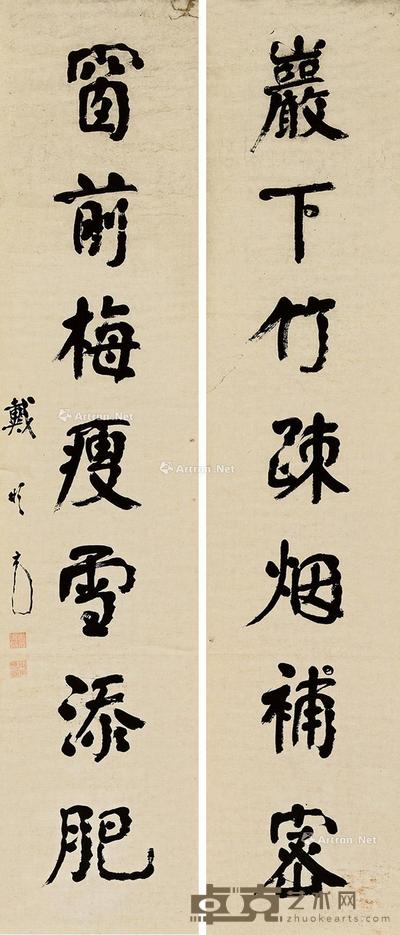 巖下竹疎烟補密
窗前梅瘦雪添肥
戴
Artron.Net
Artron.Net
Artron.Net
卓克艺术网
zhuokearts.com